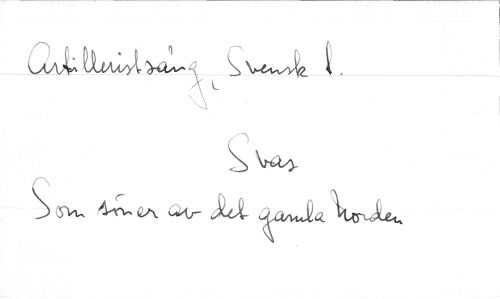 Artilleristsång, Svensk 1.
Svas
Som söner av det gamla Norden